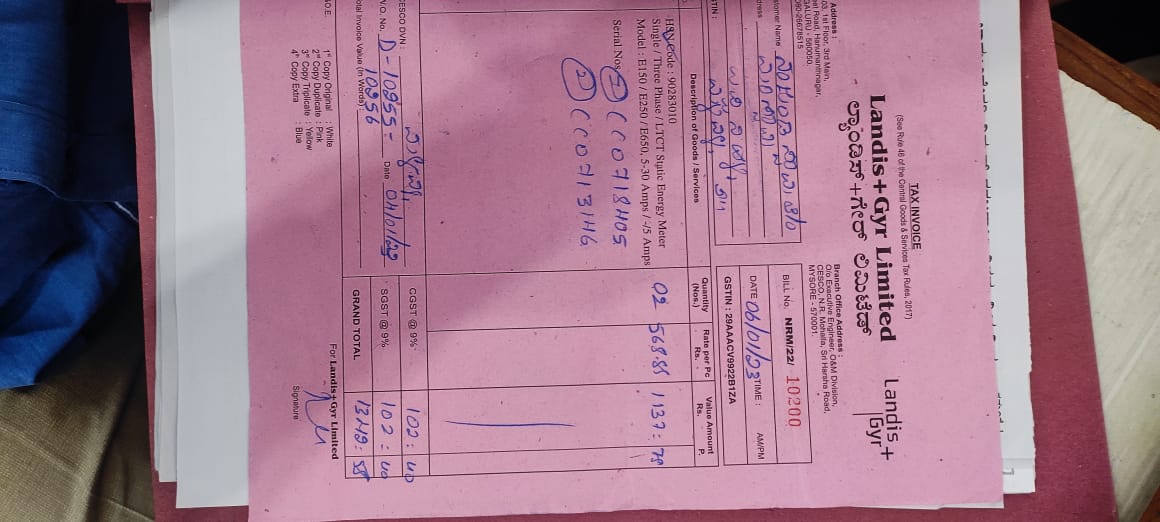 TAX INVOICE
(See Rule 46 of the Central Goods & Services Tax Rules, 2017)
Landis+Gyr Limited
ಲ್ಯಾಂಡಿಸ್+ಗೇರ್ ಲಿಮಿಟೆಡ್
Landis+
Gyr
Address :
03, 1st Floor, 3rd Main,
Road, Hanumanthnagar,
GALURU - 560050.
080-26678515
Branch Office Address :
O/o Executive Engineer, O&M Division,
CESCO, N.R. Mohalla, Sri Harsha Road,
MYSORE - 570001.
tomer Name
BILL No. NRM/22/ 10200
dress
DATE 06/01/23 TIME : AM/PM
TIN :
GSTIN : 29AAACV9922B1ZA
Description of Goods / Services
Quantity (Nos.)
Rate per Pc Rs.
Value Amount Rs. P.
HSN Code : 90283010
Single / Three Phase / LTCT Static Energy Meter
Model : E150 / E250 / E650, 5-30 Amps / -/5 Amps
02 568.85 1137=78
Serial Nos
CC0718405
CC0713146
CESCO DVN :
CGST @ 9% 102=40
V.O. No. D-10255= Date 04/01/23
10256
SGST @ 9% 102=40
otal Invoice Value (In Words)
GRAND TOTAL 1342=58
.O.E.
For Landis+Gyr Limited
1st Copy Original : White
2nd Copy Duplicate : Pink
3rd Copy Triplicate : Yellow
4th Copy Extra : Blue
Signature